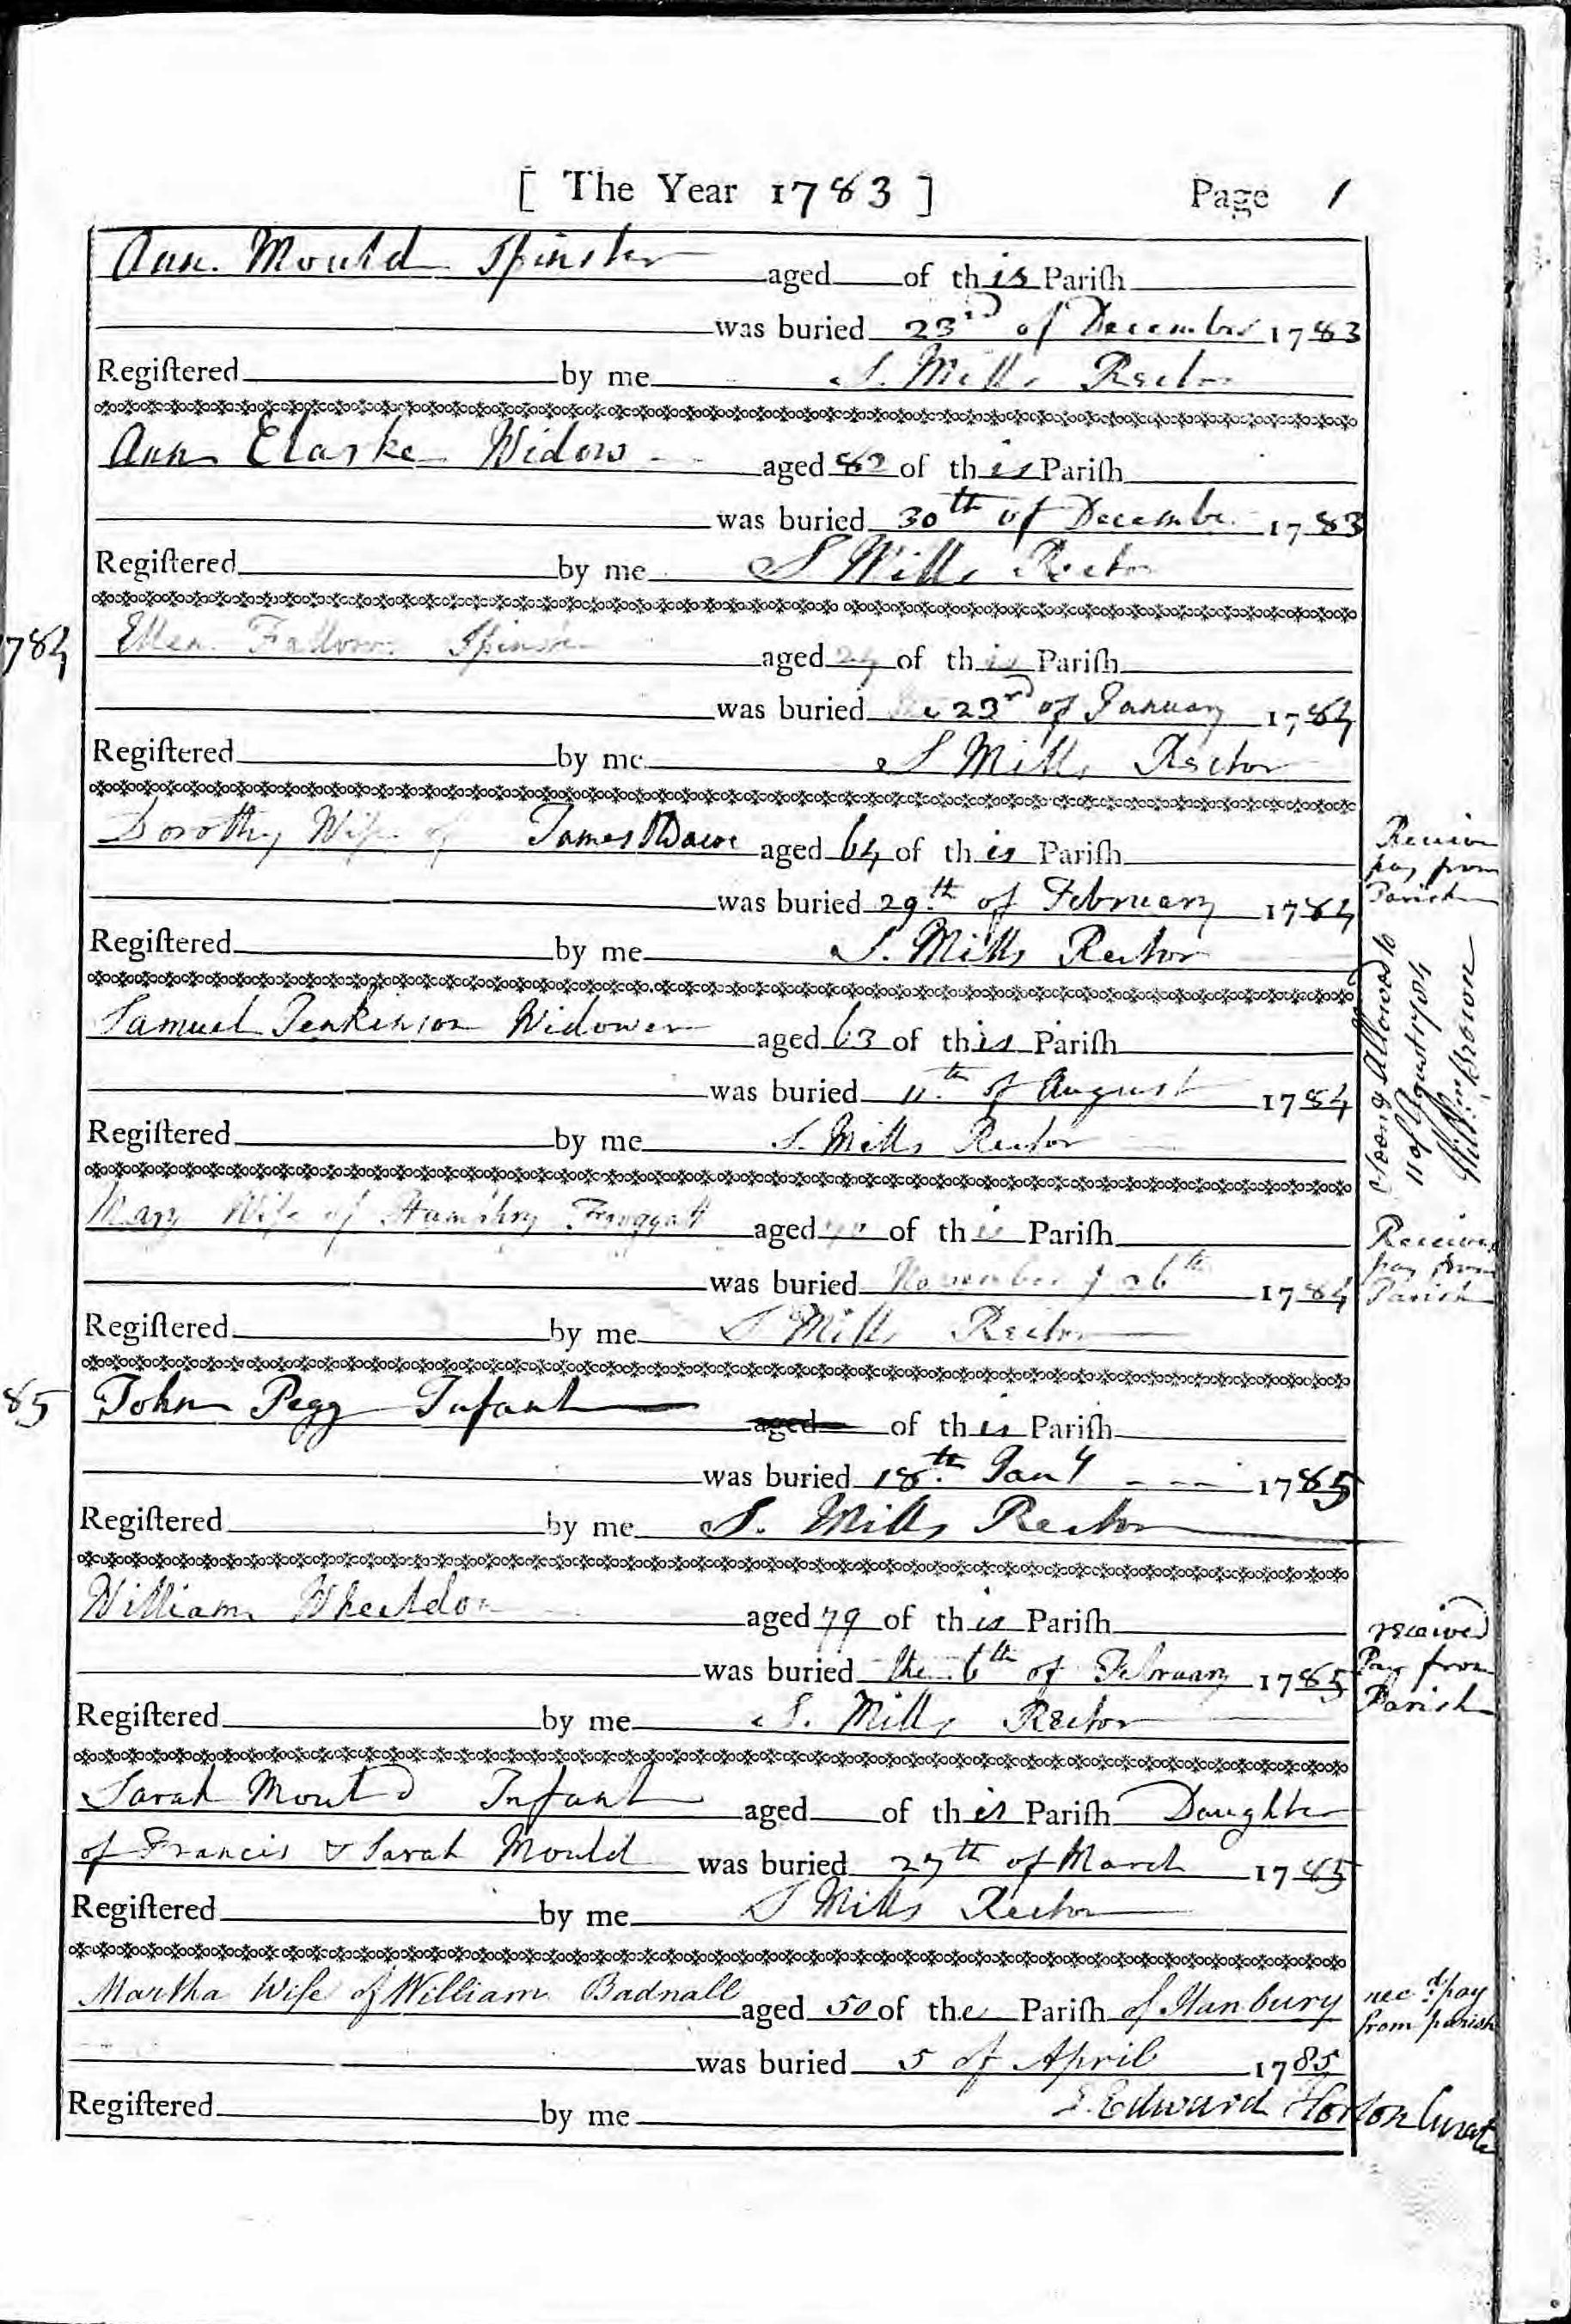 [ The Year 1783 ] Page 1
Ann Mould Spinster aged of this Pariſh
was buried 23rd of December 1783
Regiſtered by me S. Mills Rector
Ann Clarke Widow aged 82 of this Pariſh
was buried 30th of December 1783
Regiſtered by me S Mills Rector
1784
Ellen Fallows Spinster aged of this Pariſh
was buried the 23rd of January 1784
Regiſtered by me S Mills Rector
Dorothy Wife of James aged 64 of this Pariſh
was buried 29th of February 1784
Regiſtered by me S. Mills Rector
pay from
Parish
Samuel Jenkinson Widower aged 63 of this Pariſh
was buried 11th of August 1784
Regiſtered by me S. Mills Rector
Allowed to
11 of August 1784
Willm Brown
Mary Wife of Humphry Froggatt aged of this Pariſh
was buried November 26th 1784
Regiſtered by me S Mills Rector
Received
pay from
Parish
85
John Pegg Infant aged of this Pariſh
was buried 18th Jany 1785
Regiſtered by me S. Mills Rector
William Wheeldon aged 79 of this Pariſh
was buried the 6th of February 1785
Regiſtered by me S. Mills Rector
received
Pay from
Parish
Sarah Mould Infant aged of this Pariſh Daughter
of Francis & Sarah Mould was buried 27th of March 1785
Regiſtered by me S Mills Rector
Martha Wife of William Badnall aged 50 of the Pariſh of Hanbury
was buried 5 of April 1785
Regiſtered by me Edward Horton Curate
recd pay
from parish